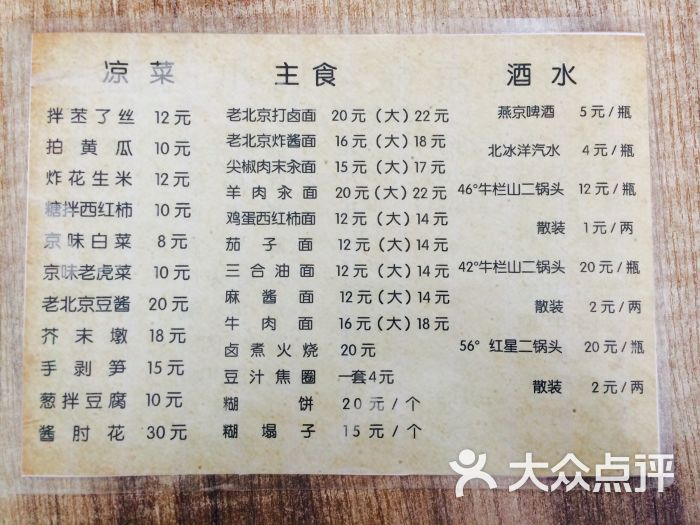 凉菜
拌苤了丝 12元
拍黄瓜 10元
炸花生米 12元
糖拌西红柿 10元
京味白菜 8元
京味老虎菜 10元
老北京豆酱 20元
芥末墩 18元
手剥笋 15元
葱拌豆腐 10元
酱肘花 30元
主食
老北京打卤面 20元(大)22元
老北京炸酱面 16元(大)18元
尖椒肉末汆面 15元(大)17元
羊肉汆面 20元(大)22元
鸡蛋西红柿面 12元(大)14元
茄子面 12元(大)14元
三合油面 12元(大)14元
麻酱面 12元(大)14元
牛肉面 16元(大)18元
卤煮火烧 20元
豆汁焦圈 一套4元
糊饼 20元/个
糊塌子 15元/个
酒水
燕京啤酒 5元/瓶
北冰洋汽水 4元/瓶
46°牛栏山二锅头 12元/瓶
散装 1元/两
42°牛栏山二锅头 20元/瓶
散装 2元/两
56°红星二锅头 20元/瓶
散装 2元/两
大众点评